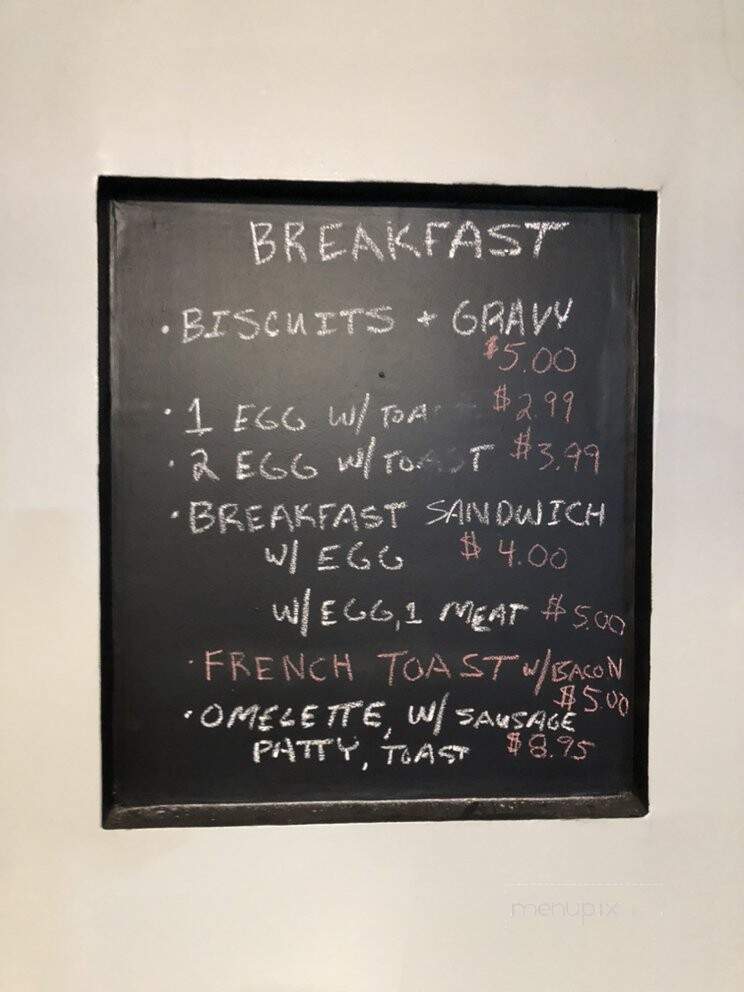 BREAKFAST
• BISCUITS + GRAVY
$5.00
• 1 EGG W/ TOA $2.99
• 2 EGG W/ TOAST $3.99
• BREAKFAST SANDWICH
W/ EGG $4.00
W/ EGG, 1 MEAT $5.00
• FRENCH TOAST W/ BACON
$5.00
• OMELETTE, W/ SAUSAGE
PATTY, TOAST $8.95
menupix